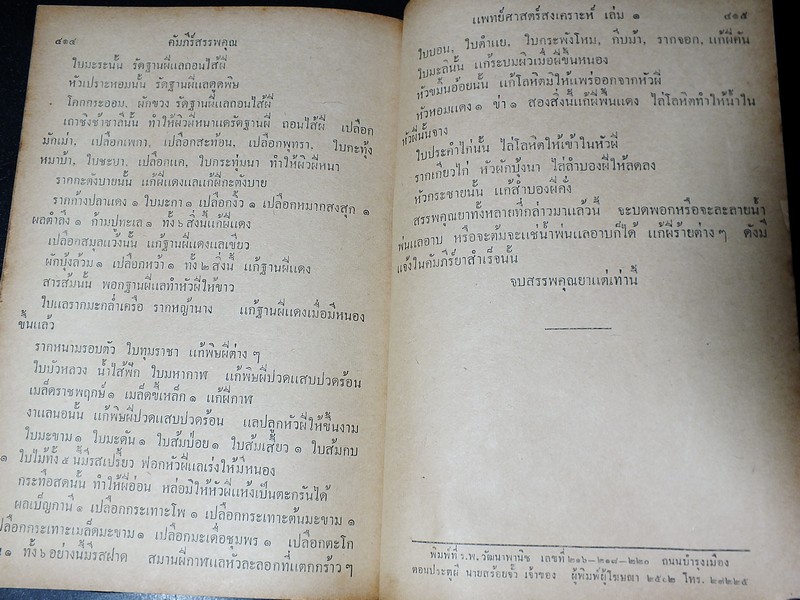 ๔๑๔ คัมภีร์สรรพคุณ
ใบมะระนั้น รัดฐานฝีแลถอนไส้ฝี
หัวเปราะหอมนั้น รัดฐานฝีแลดูดพิษ
โคกกระออม, ผักขวง รัดฐานฝีแลถอนไส้ฝี
เถาชิงช้าชาลีนั้น ทำให้ผิวฝีหนาแต่รัดฐานฝี ถอนไส้ฝี เปลือก
มักเม่า, เปลือกเพกา, เปลือกสะท้อน, เปลือกพุทรา, ใบกะทุ้ง
หมาบ้า, ใบชะบา, เปลือกแค, ใบกระทุ่มนา ทำให้ผิวฝีหนา
รากกะตังบายนั้น แก้ฝีแดงแลแก้ฝีกะตังบาย
รากก้างปลาแดง ๑ ใบมะกา ๑ เปลือกงิ้ว ๑ เปลือกหมากสงสุก ๑
ผลตำลึง ๑ ก้ามปูทะเล ๑ ทั้ง ๖ สิ่งนี้แก้ฝีแดง
เปลือกสมุลแว้งนั้น แก้ฐานฝีแดงแลเขียว
ผักบุ้งล้วม ๑ เปลือกหว้า ๑ ทั้ง ๒ สิ่งนี้ แก้ฐานฝีแดง
สารส้มนั้น พอกฐานฝีแลทำหัวฝีให้ขาว
ใบแลรากมะกล่ำเครือ รากหญ้านาง แก้ฐานฝีแดงเมื่อมีหนอง
ขึ้นแล้ว
รากหนามรอบตัว ใบทุมราชา แก้พิษฝีต่าง ๆ
ใบบัวหลวง น้ำไส้ฟัก ใบมหากาฬ แก้พิษฝีปวดแสบปวดร้อน
เมล็ดราชพฤกษ์ ๑ เมล็ดขี้เหล็ก ๑ แก้ฝีกาฬ
งาแลนอนั้น แก้พิษฝีปวดแสบปวดร้อน แลปลูกหัวฝีให้ขึ้นงาม
ใบมะขาม ๑ ใบมะดัน ๑ ใบส้มป่อย ๑ ใบส้มเสี้ยว ๑ ใบส้มกบ
๑ ใบไม้ทั้ง ๕ นี้มีรสเปรี้ยว ฟอกหัวฝีแลเร่งให้มีหนอง
กระทือสดนั้น ทำให้ฝีอ่อน หล่อมิให้หัวฝีแห้งเป็นตะกรันได้
ผลเบ็ญกานี ๑ เปลือกกระเทาะโพ ๑ เปลือกกระเทาะต้นมะขาม ๑
เปลือกกระเทาะเมล็ดมะขาม ๑ เปลือกมะเดื่อชุมพร ๑ เปลือกตะโก
๑ ทั้ง ๖ อย่างนี้มีรสฝาด สมานฝีกาฬแลหัวละลอกที่แตกกร้าว ๆ
แพทย์ศาสตร์สงเคราะห์ เล่ม ๑ ๔๑๕
ใบบอน, ใบดำแย, ใบกระพังโหม, กีบม้า, รากจอก, แก้ฝีคัน
ใบมะลินั้น แก้ระบมผิวเมื่อฝีขึ้นหนอง
หัวขมิ้นอ้อยนั้น แก้โลหิตมิให้แพร่ออกจากหัวฝี
หัวหอมแดง ๑ ข่า ๑ สองสิ่งนี้แก้ฝีพื้นแดง ไล่โลหิตทำให้น้ำใน
หัวฝีนั้นจาง
ใบประคำไก่นั้น ไล่โลหิตให้เข้าในหัวฝี
รากเกี่ยวไก่ หัวผักปุ้งนา ไล่ลำบองฝีให้ลดลง
หัวกระชายนั้น แก้ลำบองฝีคั่ง
สรรพคุณยาทั้งหลายที่กล่าวมาแล้วนี้ จะบดพอกหรือจะละลายน้ำ
พ่นแลอาบ หรือจะต้มจะแช่น้ำพ่นแลอาบก็ได้ แก้ฝีร้ายต่าง ๆ ดังมี
แจ้งในคัมภีร์ยาสำเร็จนั้น
จบสรรพคุณยาแต่เท่านี้
พิมพ์ที่ ร.พ. วัฒนาพานิช เลขที่ ๒๑๖–๒๑๘–๒๒๐ ถนนบำรุงเมือง
ตอนประตูผี นายสร้อยจั๊ว เจ้าของ ผู้พิมพ์ผู้โฆษณา ๒๕๐๒ โทร. ๒๗๒๒๕